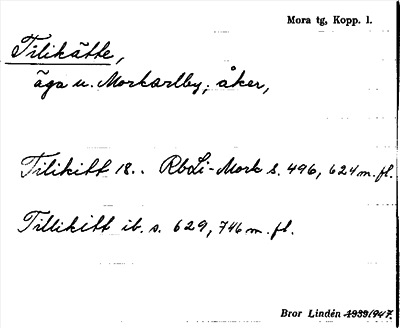 Mora tg, Kopp. l.
Tilikätte,
äga u. Morkarlby; åker,
Tilikitt 18.. RbLi-Mork s. 496, 624 m. fl.
Tillikitt ib. s. 629, 746 m. fl.
Bror Lindén 1939/1947.